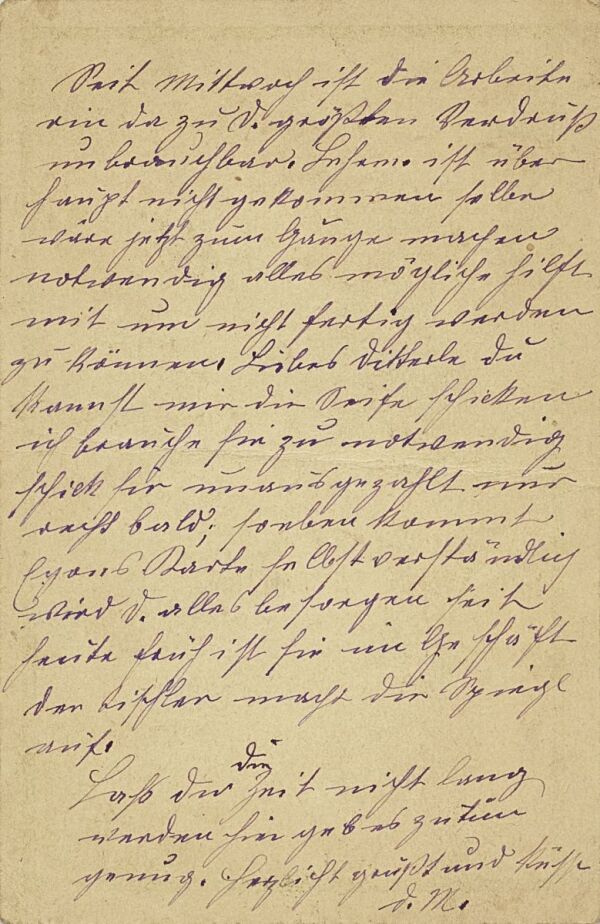 Seit Mittwoch ist die Arbeite
rin da zu D. größten Verdruß
unbrauchbar. Lehm. ist über
haupt nicht gekommen selbe
wäre jetzt zum Gänge machen
notwendig alles mögliche hilft
mit um nicht fertig werden
zu können. Liebes Ditterle du
kannst mir die Seife schicken
ich brauche sie zu notwendig
schick sie unausgezahlt nur
recht bald; soeben kommt
Egons Karte selbstverständlich
wird D. alles besorgen seit
heute früh ist sie im Geschäft
der Tischler macht die Spiegl
auf.
Laß dir die Zeit nicht lang
werden hier gebs zu tun
genug. Herzlichst grüßt und küßt
d. M.